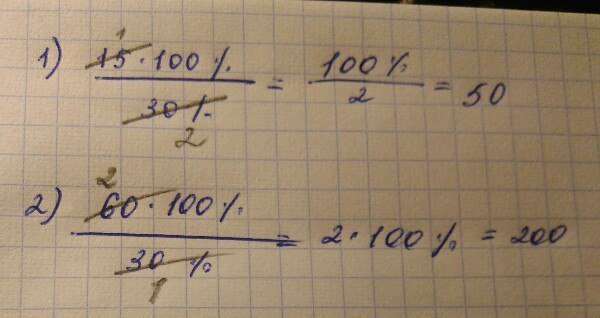 1
1) 15 · 100 % / 30 % = 100 % / 2 = 50
2
2
2) 60 · 100 % / 30 % = 2 · 100 % = 200
1